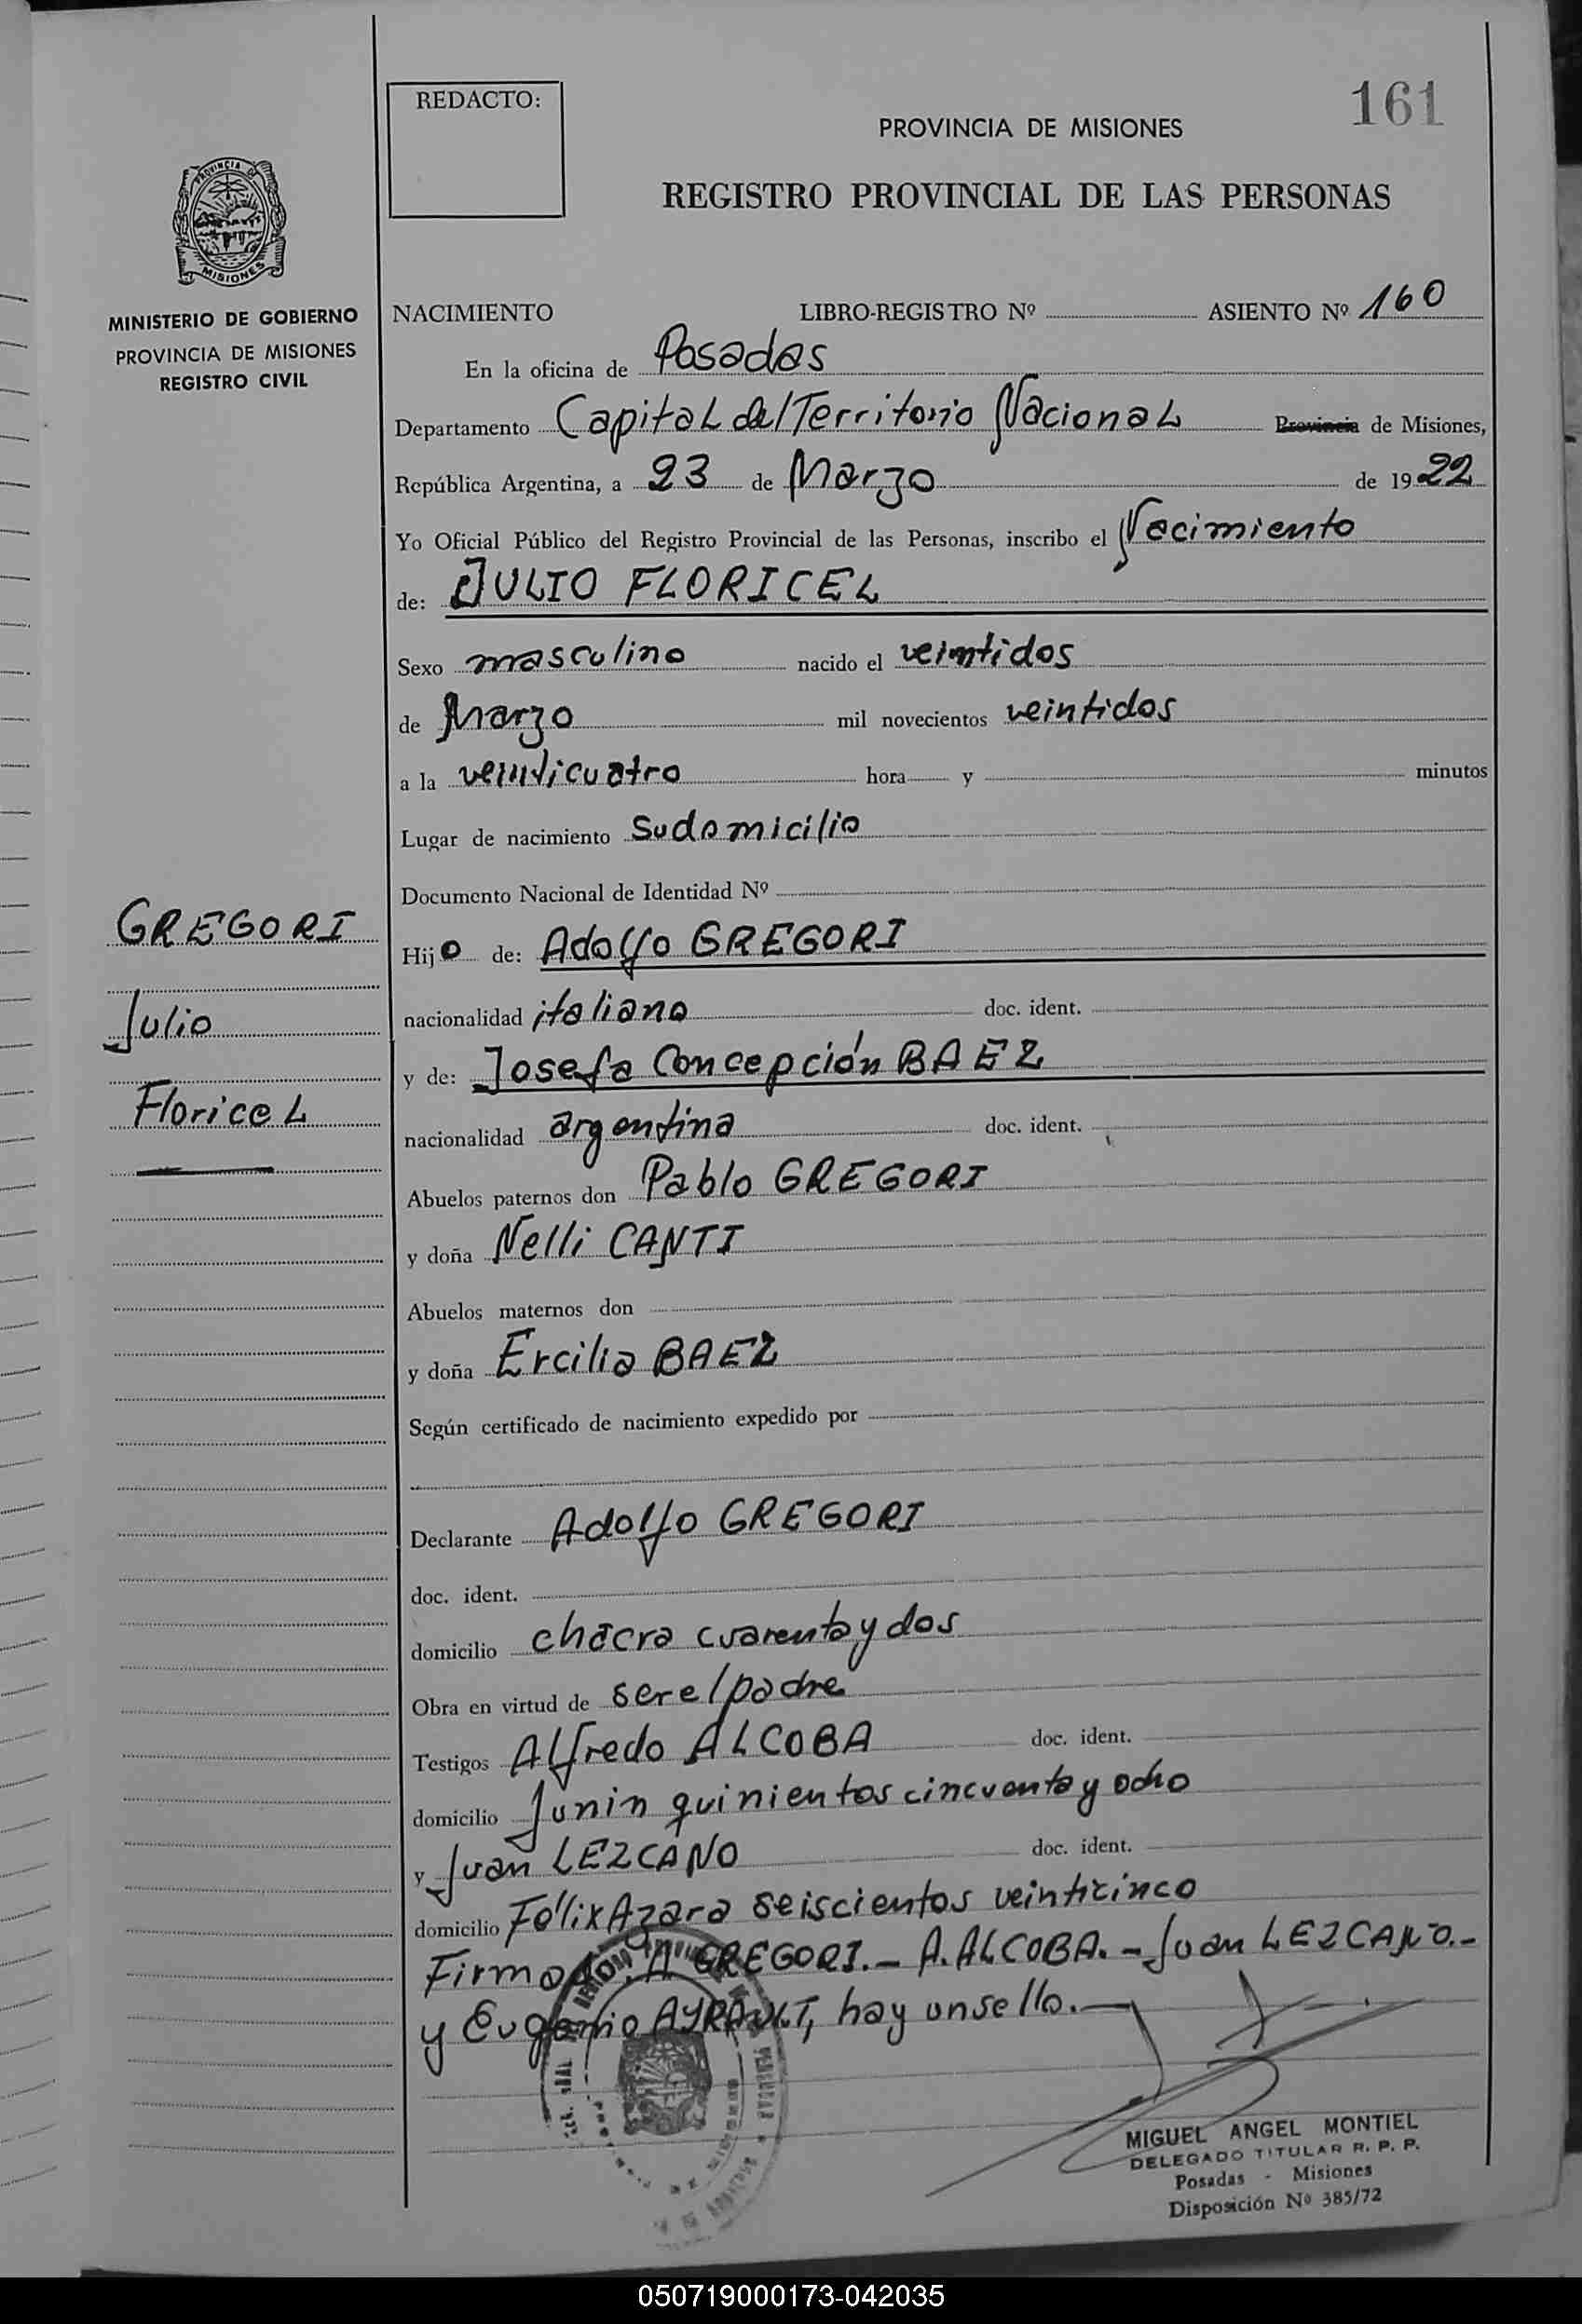 REDACTO:
161
PROVINCIA DE MISIONES
REGISTRO PROVINCIAL DE LAS PERSONAS
PROVINCIA DE
MISIONES
MINISTERIO DE GOBIERNO
PROVINCIA DE MISIONES
REGISTRO CIVIL
NACIMIENTO LIBRO-REGISTRO Nº ASIENTO Nº 160
En la oficina de Posadas
Departamento Capital del Territorio Nacional Provincia de Misiones,
República Argentina, a 23 de Marzo de 1922
Yo Oficial Público del Registro Provincial de las Personas, inscribo el Nacimiento
de: JULIO FLORICEL
Sexo masculino nacido el veintidos
de Marzo mil novecientos veintidos
a la veinticuatro hora y minutos
Lugar de nacimiento Su domicilio
Documento Nacional de Identidad Nº
GREGORI
Julio
Floricel
Hijo de: Adolfo GREGORI
nacionalidad italiana doc. ident.
y de: Josefa Concepción BAEZ
nacionalidad argentina doc. ident.
Abuelos paternos don Pablo GREGORI
y doña Nelli CANTI
Abuelos maternos don
y doña Ercilia BAEZ
Según certificado de nacimiento expedido por
Declarante Adolfo GREGORI
doc. ident.
domicilio chacra cuarenta y dos
Obra en virtud de ser el padre
Testigos Alfredo ALCOBA doc. ident.
domicilio Junin quinientos cincuenta y ocho
y Juan LEZCANO doc. ident.
domicilio Félix Azara seiscientos veinticinco
Firmado: A GREGORI.- A. ALCOBA.- Juan LEZCANO.-
y Eugenio AYRAULT, hay un sello.-
MIGUEL ANGEL MONTIEL
DELEGADO TITULAR R. P. P.
Posadas - Misiones
Disposición Nº 385/72
050719000173-042035